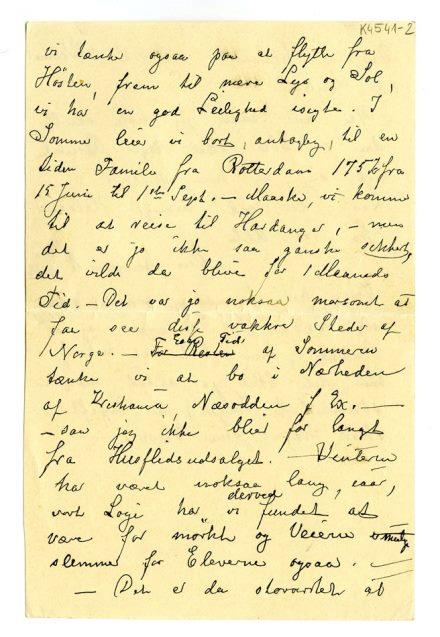 K4541-2
vi tænke ogsaa paa at flytte fra
Hösten, frem til mere Lys og Sol,
vi har en god Leilighed isigte. I
Sommer leier vi bort, antagelig, til en
liden Familie fra Rotterdam 175 fra
15 Juni til 1ste Sept. – Maaske, vi komme
til at reise til Hardanger, – men
det er jo ikke saa ganske sikkert,
det vilde da blive for 1 Maaneds
Tid. – Det var jo noksaa morsomt at
faa see disse vakkre Steder af
Norge. – For Resten Tid af Sommeren
tænke vi at bo i Nærheden
af Kristiania, Næsodden f Ex. –
– saa jeg ikke blir for langt
fra Husflidsudsalget. – Vinteren
har været noksaa lang, iaar,
vort Logi har vi derved fundet at
være for mörkt og Veiene
slemme for Eleverne ogsaa. –
– Det er da storartet at